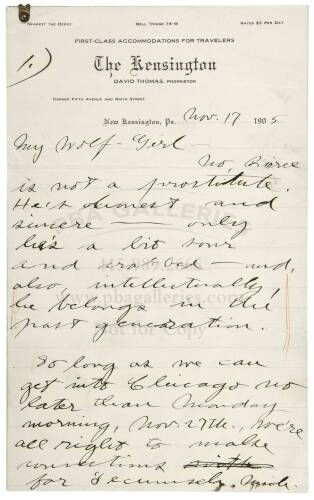 NEAREST THE DEPOT BELL 'PHONE 78-W RATES $2 PER DAY
FIRST-CLASS ACCOMMODATIONS FOR TRAVELERS
1.)
The Kensington
DAVID THOMAS, PROPRIETOR
CORNER FIFTH AVENUE AND NINTH STREET
New Kensington, Pa. Nov. 17 1905
My Wolf-Girl —
No, Bierce
is not a prostitute.
He's honest and
sincere — only
he's a bit sour
and — and,
also, intellectually,
he belongs in the
past generation.
So long as we can
get into Chicago no
later than Monday
morning, Nov. 27th, we're
all right to make
connections with
for Tecumseh, Mich.
PBA GALLERIES
www.pbagalleries.com
Not for Copy